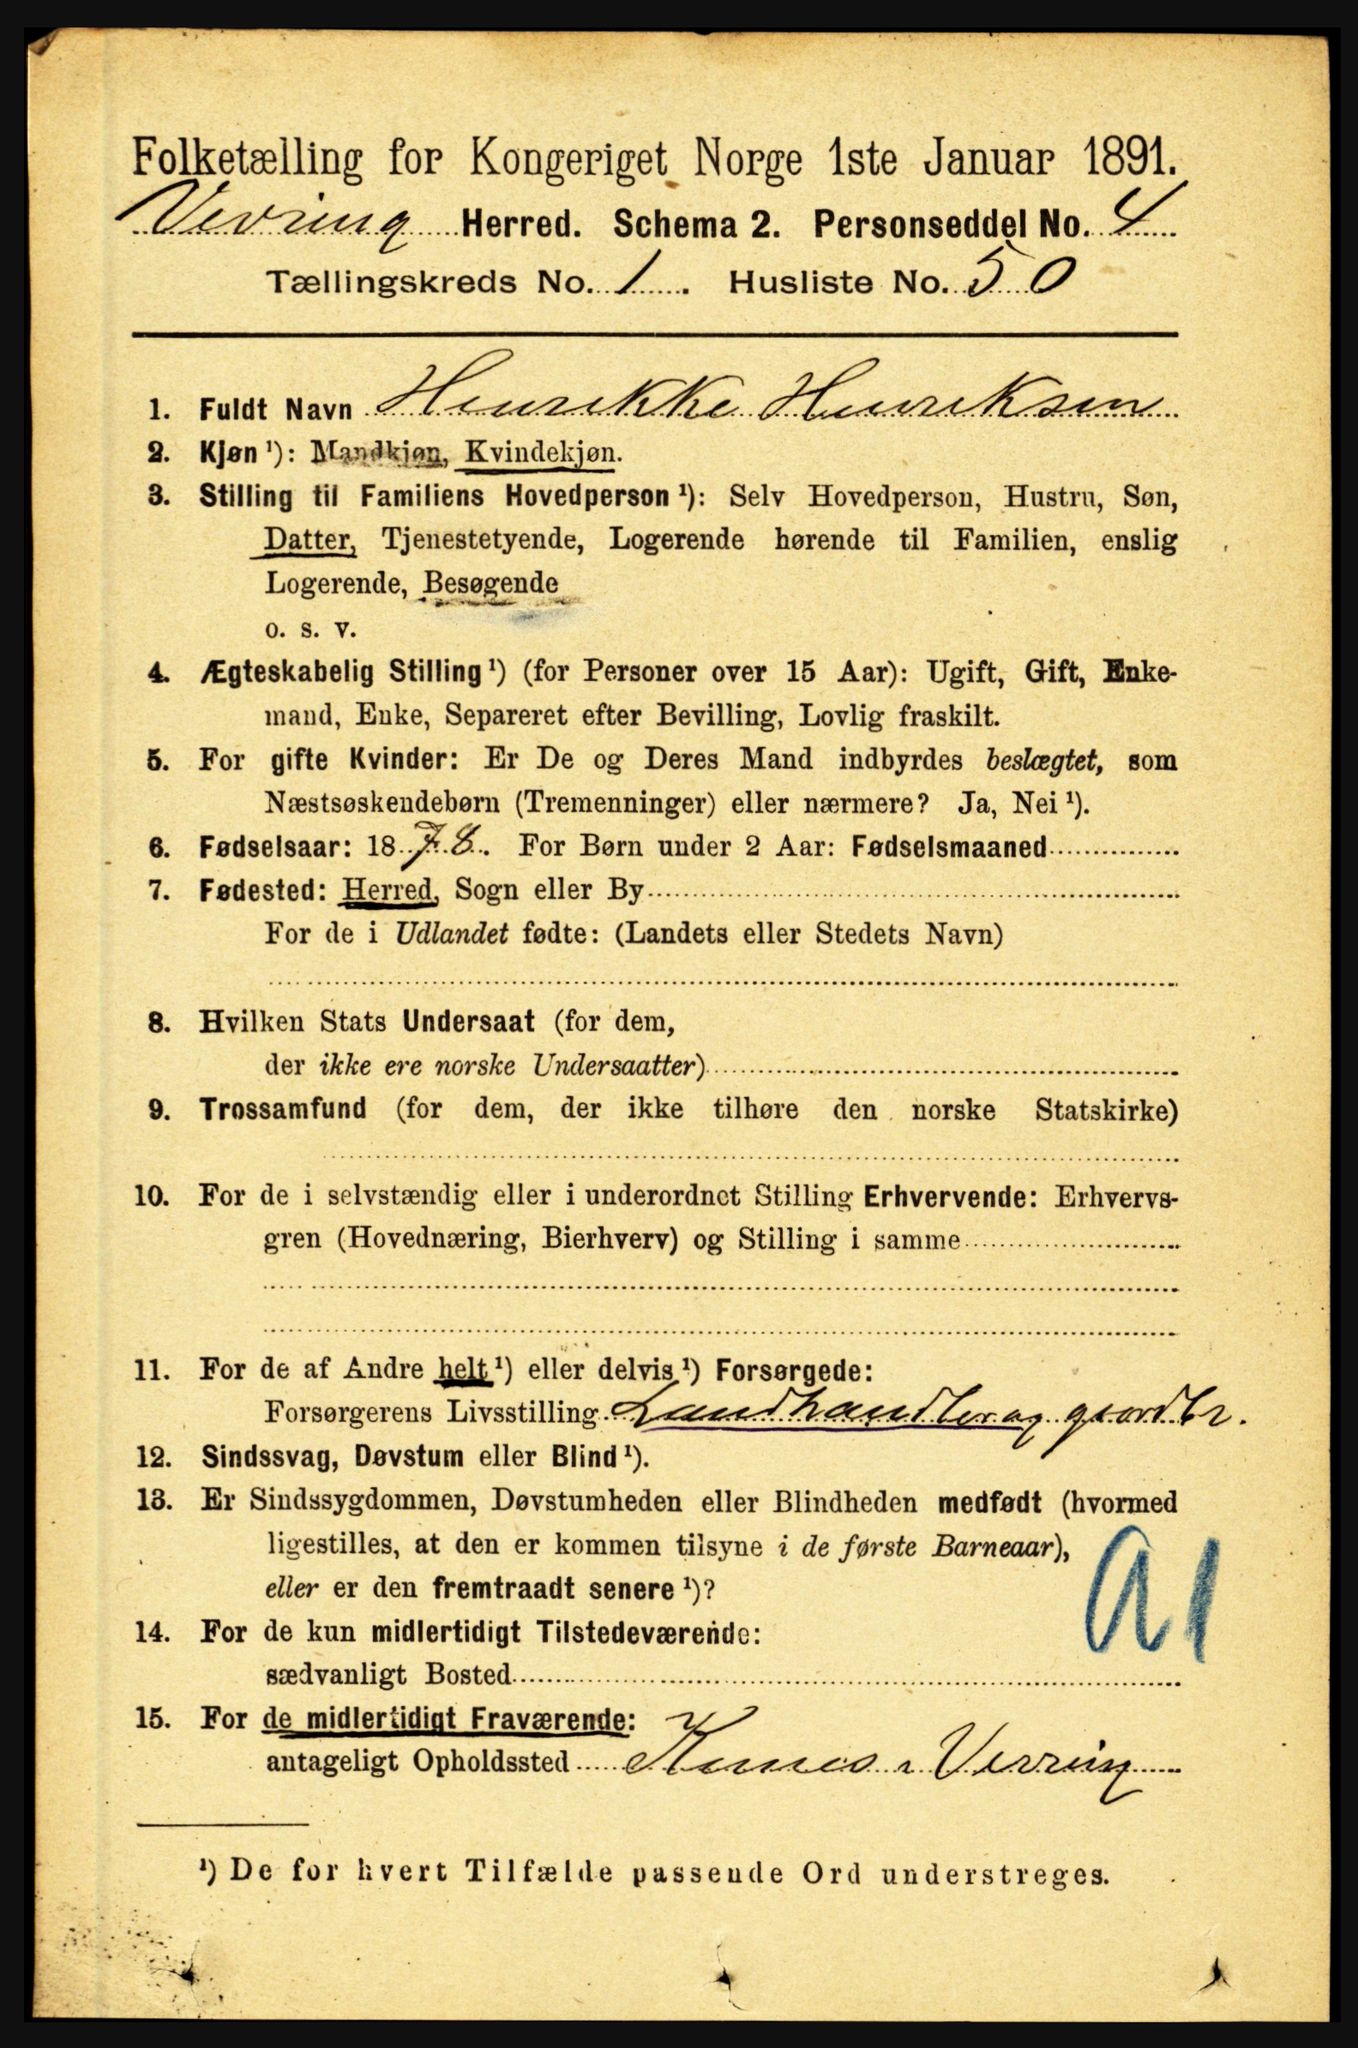 Folketælling for Kongeriget Norge 1ste Januar 1891.
Vevring Herred. Schema 2. Personseddel No. 4
Tællingskreds No. 1. Husliste No. 50
1. Fuldt Navn Henrikke Henriksen
2. Kjøn ¹): Mandkjøn, Kvindekjøn.
3. Stilling til Familiens Hovedperson ¹): Selv Hovedperson, Hustru, Søn,
Datter, Tjenestetyende, Logerende hørende til Familien, enslig
Logerende, Besøgende
o. s. v.
4. Ægteskabelig Stilling ¹) (for Personer over 15 Aar): Ugift, Gift, Enke-
mand, Enke, Separeret efter Bevilling, Lovlig fraskilt.
5. For gifte Kvinder: Er De og Deres Mand indbyrdes beslægtet, som
Næstsøskendebørn (Tremenninger) eller nærmere? Ja, Nei ¹).
6. Fødselsaar: 1878. For Børn under 2 Aar: Fødselsmaaned
7. Fødested: Herred, Sogn eller By
For de i Udlandet fødte: (Landets eller Stedets Navn)
8. Hvilken Stats Undersaat (for dem,
der ikke ere norske Undersaatter)
9. Trossamfund (for dem, der ikke tilhøre den norske Statskirke)
10. For de i selvstændig eller i underordnet Stilling Erhvervende: Erhvervs-
gren (Hovednæring, Bierhverv) og Stilling i samme
11. For de af Andre helt ¹) eller delvis ¹) Forsørgede:
Forsørgerens Livsstilling Landhandler og gaardbr.
12. Sindssvag, Døvstum eller Blind ¹).
13. Er Sindssygdommen, Døvstumheden eller Blindheden medfødt (hvormed
ligestilles, at den er kommen tilsyne i de første Barneaar),
eller er den fremtraadt senere ¹)?
a1
14. For de kun midlertidigt Tilstedeværende:
sædvanligt Bosted
15. For de midlertidigt Fraværende:
antageligt Opholdssted Vevring
¹) De for hvert Tilfælde passende Ord understreges.